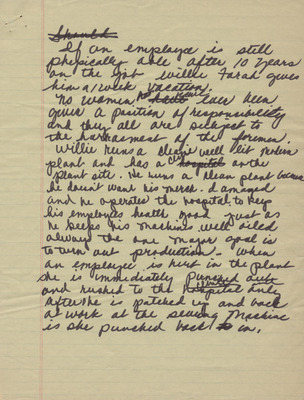 Should
If an employee is still
physically able after 10 years
on the job Willie Farah gives
him a 1 week vacation.
No women have ever been
given a position of responsibility
and they all are subject to
the harrassment of the foremen.
Willie runs a clean well lit modern
plant and has a hospital on the
plant site. He runs a clean plant because
he doesn't want his merch. damaged
and he operates the hospital to keep
his employees health good just as
he keeps his machines well oiled
always the one major goal is
to turn out production. When
an employee is hurt in the plant
she is immediately punched out
and rushed to the hospital only
after she is patched up and back
at work at the sewing machine
is she punched back in.